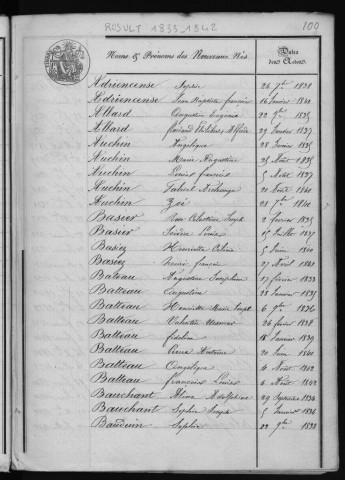 ROSULT 1833-1842
100
Noms & Prénoms des Nouveaux Nés
Dates des Actes
Adriencense Sophie 26 7bre 1838
Adriencense Jean Baptiste françois 16 février 1840
Allard Augustine Eugénie 22 1835
Allard 29 1837
Auchin Angélique 28 février 1835
Auchin Marie Augustine 25 Août 1835
Auchin Louis francois 5 Août 1837
Auchin 20 Août 1840
Auchin Zoé 28 7bre 1840
Basier Célestine Joseph 2 février 1835
Basier Louise 15 Juillet 1837
Basiez Henriette 5 Juin 1840
Basiez henri françois 27 Août 1841
Bateau Augustine Joséphine 17 février 1833
Batteau Augustine 28 Janvier 1837
Batteau Henriette Marie Joseph 6 1836
Batteau Valentin 26 février 1838
Batteau fidéline 18 Janvier 1839
Batteau Pierre Antoine 20 Juin 1840
Batteau Angélique 4 Août 1842
Batteau françois Louis 6 Août 1842
Bauchant Adolphine 29 Septembre 1834
Bauchant Sophie Joseph 5 Janvier 1836
Bauduin Sophie 22 9bre 1833